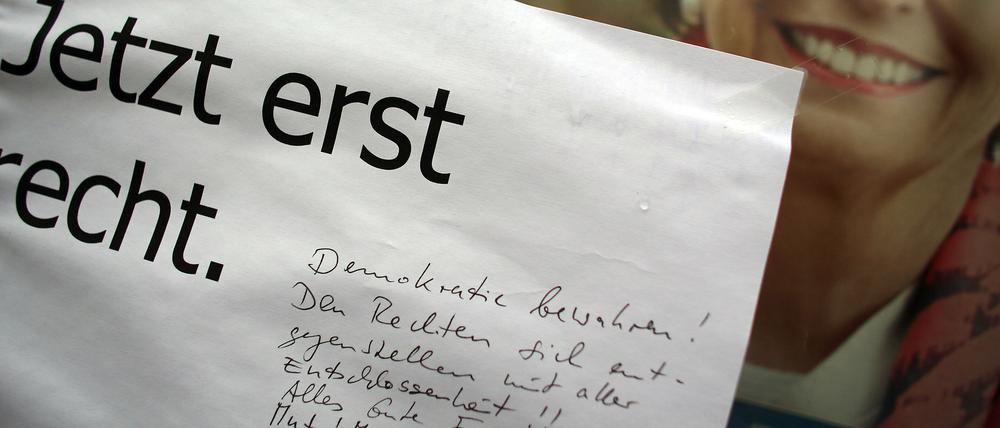 Jetzt erst
recht.
Demokratie bewahren!
Den Rechten sich ent-
gegenstellen mit aller
Entschlossenheit!!
Alles Gute
Mut!